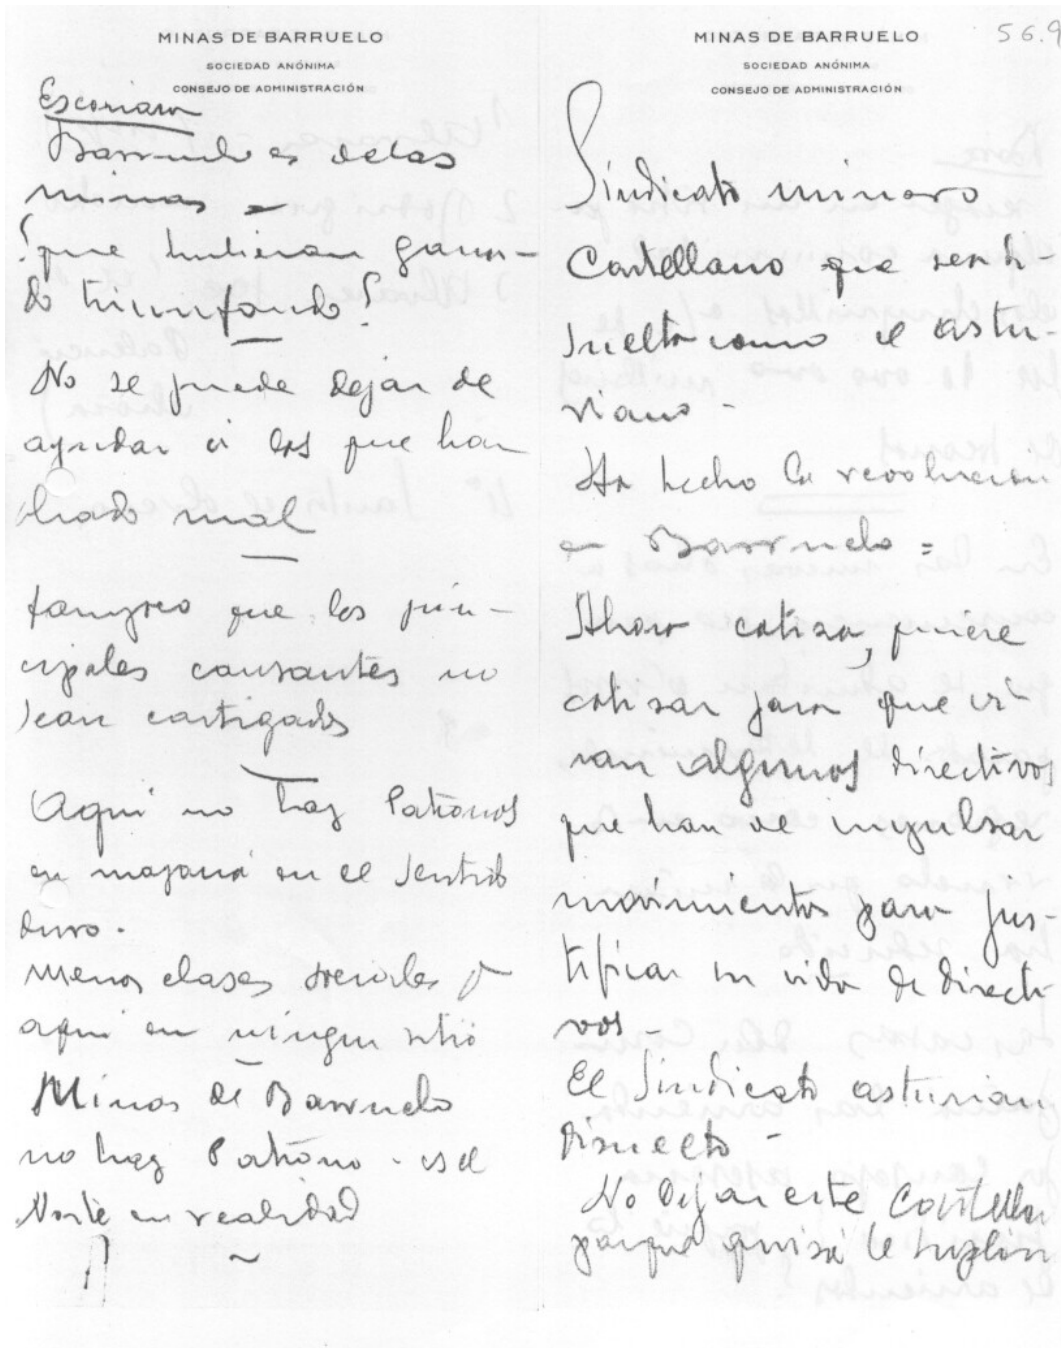 MINAS DE BARRUELO
SOCIEDAD ANÓNIMA
CONSEJO DE ADMINISTRACIÓN
Escoriaza
Barruelo es de las
minas =
¿que hubieran gana-
do triunfando?
No se puede dejar de
ayudar a los que han
obrado mal
tampoco que los prin-
cipales causantes no
sean castigados
Aqui no hay Patronos
en mayoria en el sentido
duro.
menos clases sociales q
aqui en ningun sitio
Minas de Barruelo
no hay Patrono - es el
Norte en realidad
56.9
MINAS DE BARRUELO
SOCIEDAD ANÓNIMA
CONSEJO DE ADMINISTRACIÓN
Sindicato minero
Castellano que sea di-
suelto como el astu-
riano -
Ha hecho la revolucion
en Barruelo =
Ahora cotiza, quiere
cotizar para que vi-
van algunos directivos
que han de impulsar
movimientos para jus-
tificar su vida de directi-
vos -
El Sindicato asturiano
disuelto -
No dejar este Castellano
porque quizá le